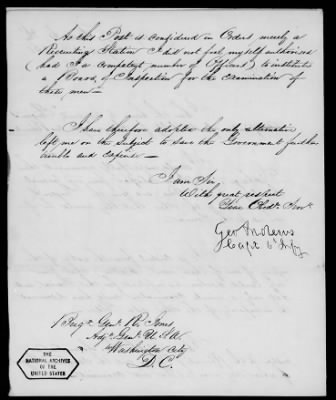 As this Post is considered in Orders merely a
Recruiting Station I did not feel myself authorised
(had I a competent number of Officers) to institute
a Board of Inspection for the examination of
these men —
I have therefore adopted the only alternative
left me on the subject to save the Government further
trouble and expense —
I am Sir
With great respect
Your Obdt. Servt.
Geo Andrews
Capt 6th Infy
Brigr. Genl. R. Jones
Adjt. Genl. U.S.A.
Washington City
D.C.
THE
NATIONAL ARCHIVES
OF THE
UNITED STATES